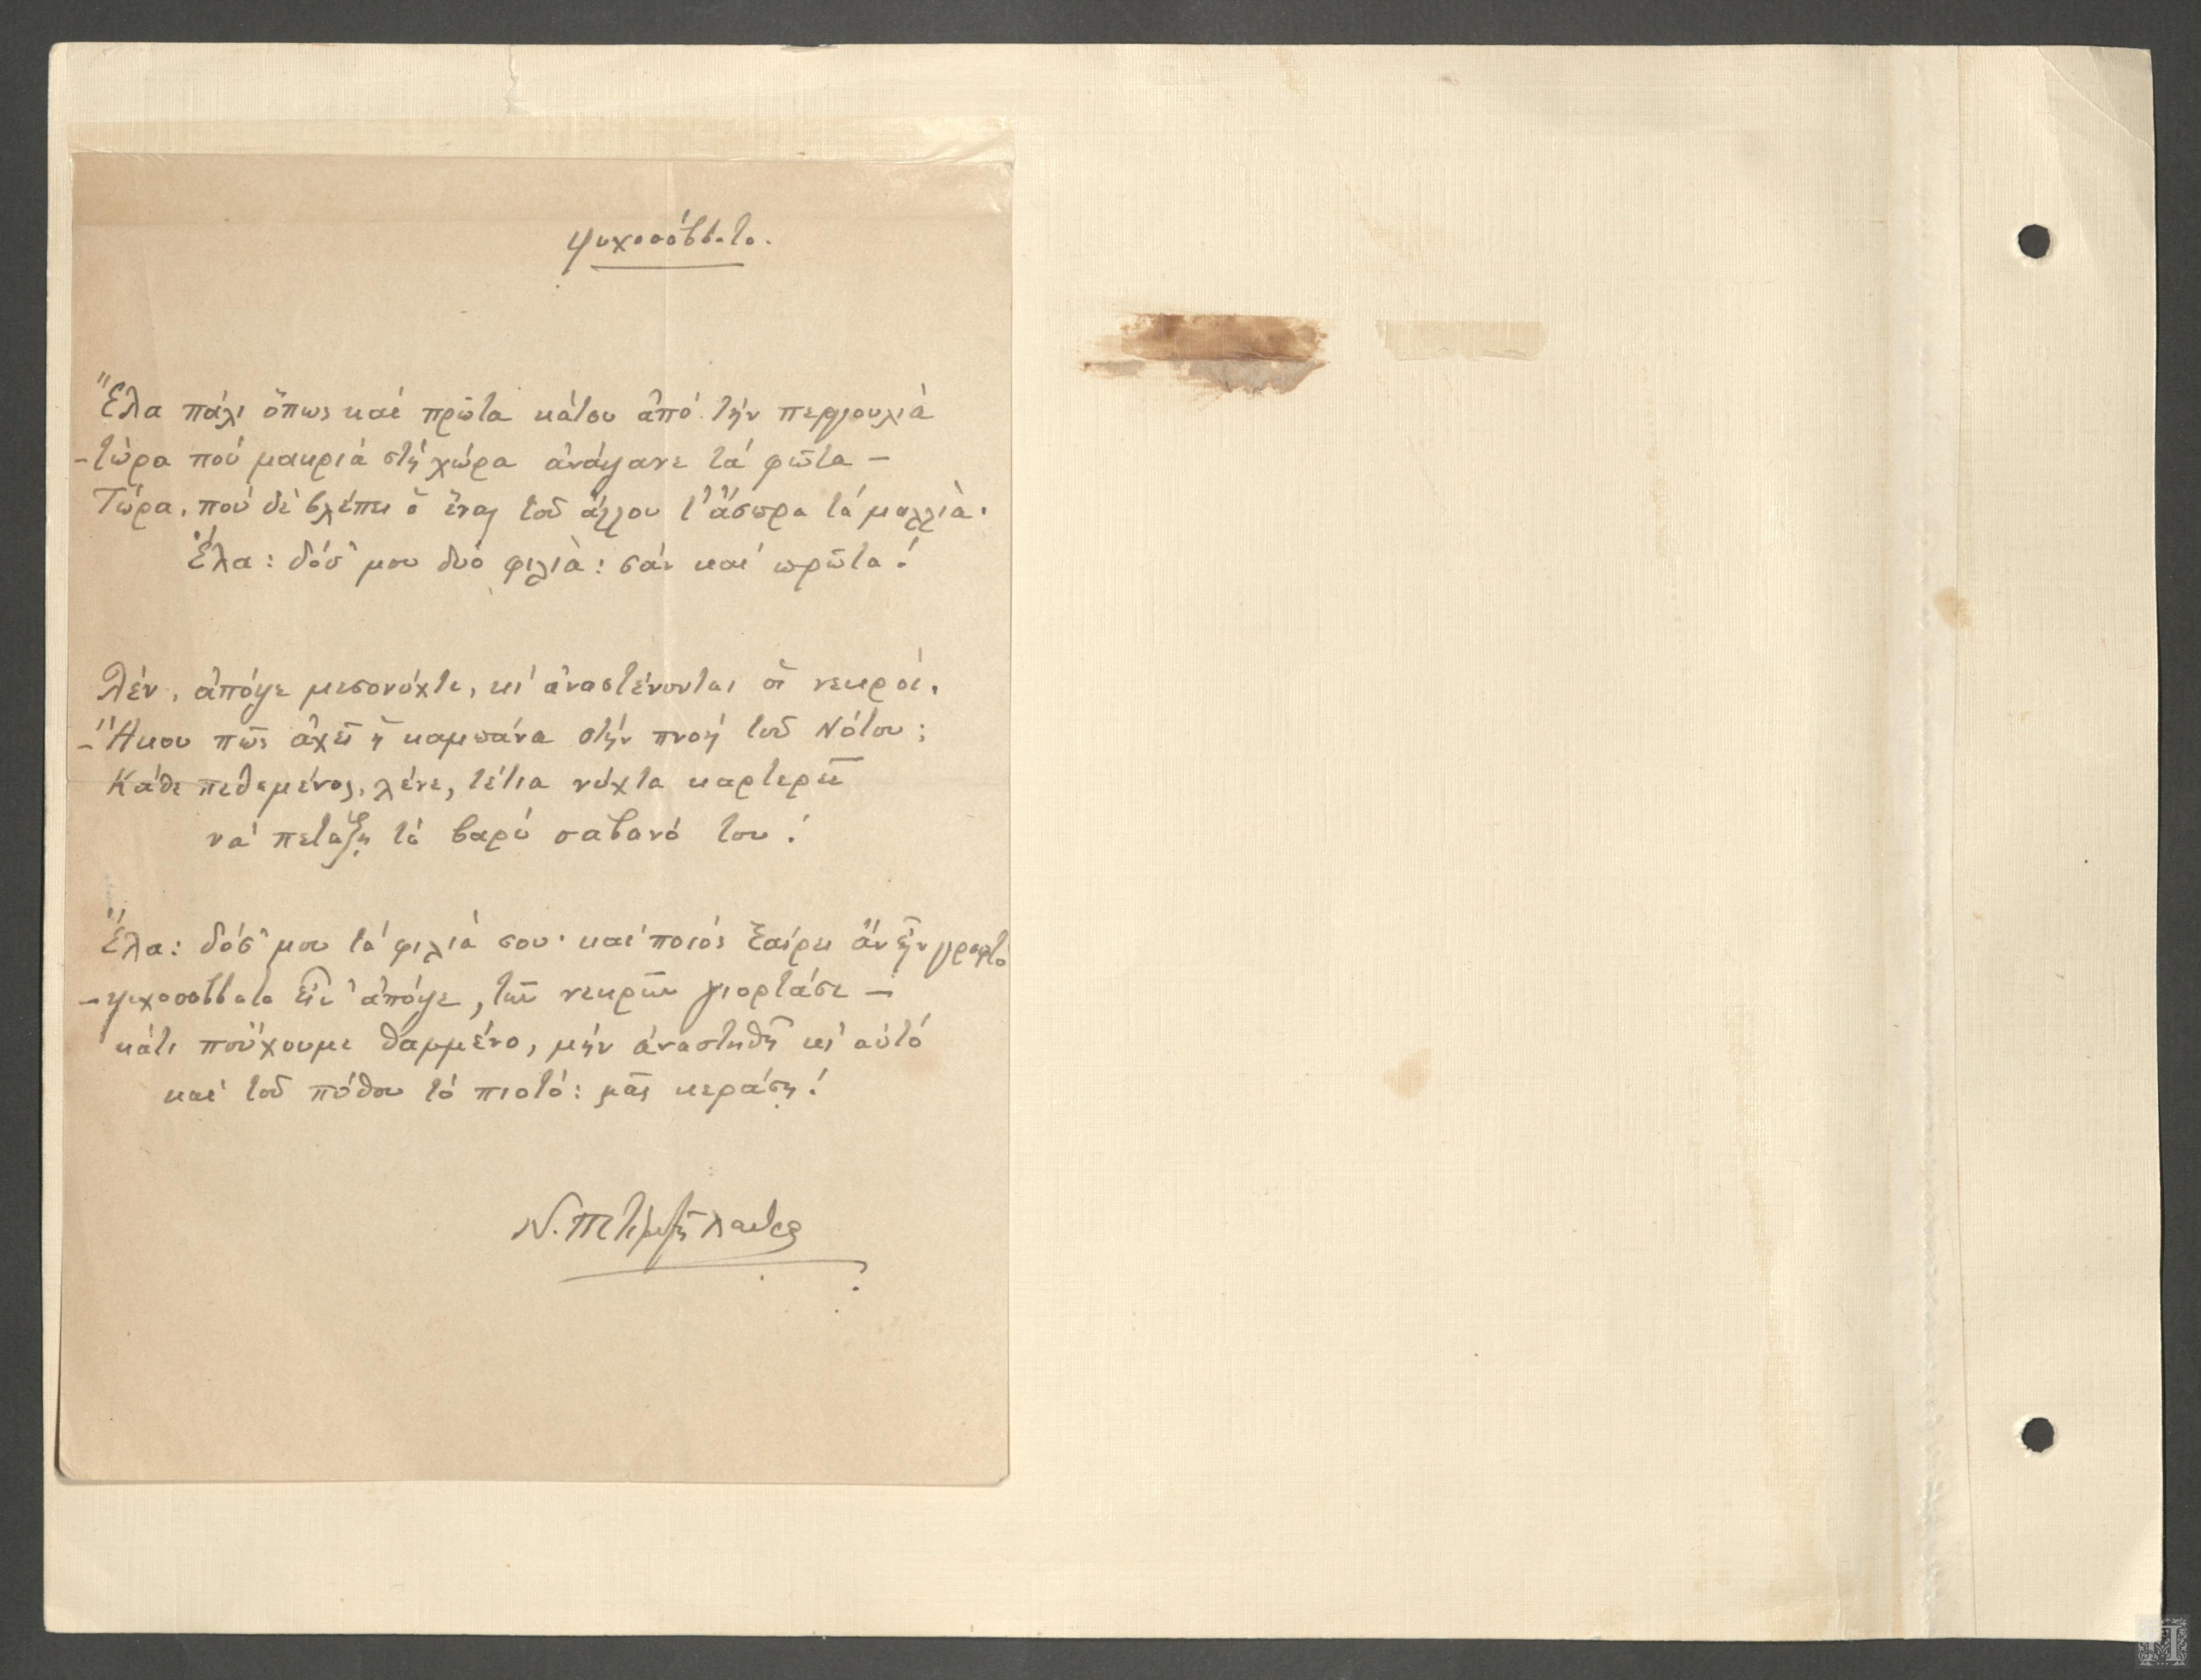 Ψυχοσάββατο.
Ἔλα πάλι ὅπως καὶ πρῶτα κάτου ἀπὸ τὴν περγουλιὰ
– τώρα ποὺ μακριὰ στὴ χώρα ἀνάψανε τὰ φῶτα –
Τώρα, ποὺ δὲ βλέπει ὁ ἕνας τοῦ ἄλλου τ' ἄσπρα τὰ μαλλιὰ·
Ἔλα: δόσ' μου δυὸ φιλιὰ: σὰν καὶ πρῶτα!
Λέν, ἀπόψε μεσονύχτι, κι' ἀναστένονται οἱ νεκροί.
– Ἄκου πῶς ἀχεῖ ἡ καμπάνα στὴν πνοὴ τοῦ Νότου;
Κάθε πεθαμένος, λένε, τέτια νύχτα καρτερεῖ
νὰ πετάξῃ τὸ βαρὺ σάβανό του!
Ἔλα: δόσ' μου τὰ φιλιὰ σου· καὶ ποιὸς ξαίρει ἂν εἶν γραφτὸ
– ψυχοσάββατο εἶν' ἀπόψε, τῶν νεκρῶν γιορτάσι –
κάτι ποὔχουμε θαμμένο, μὴν ἀναστηθῆ κι' αὐτὸ
καὶ τοῦ πόθου τὸ πιοτό: μᾶς κεράσῃ!
Ν.